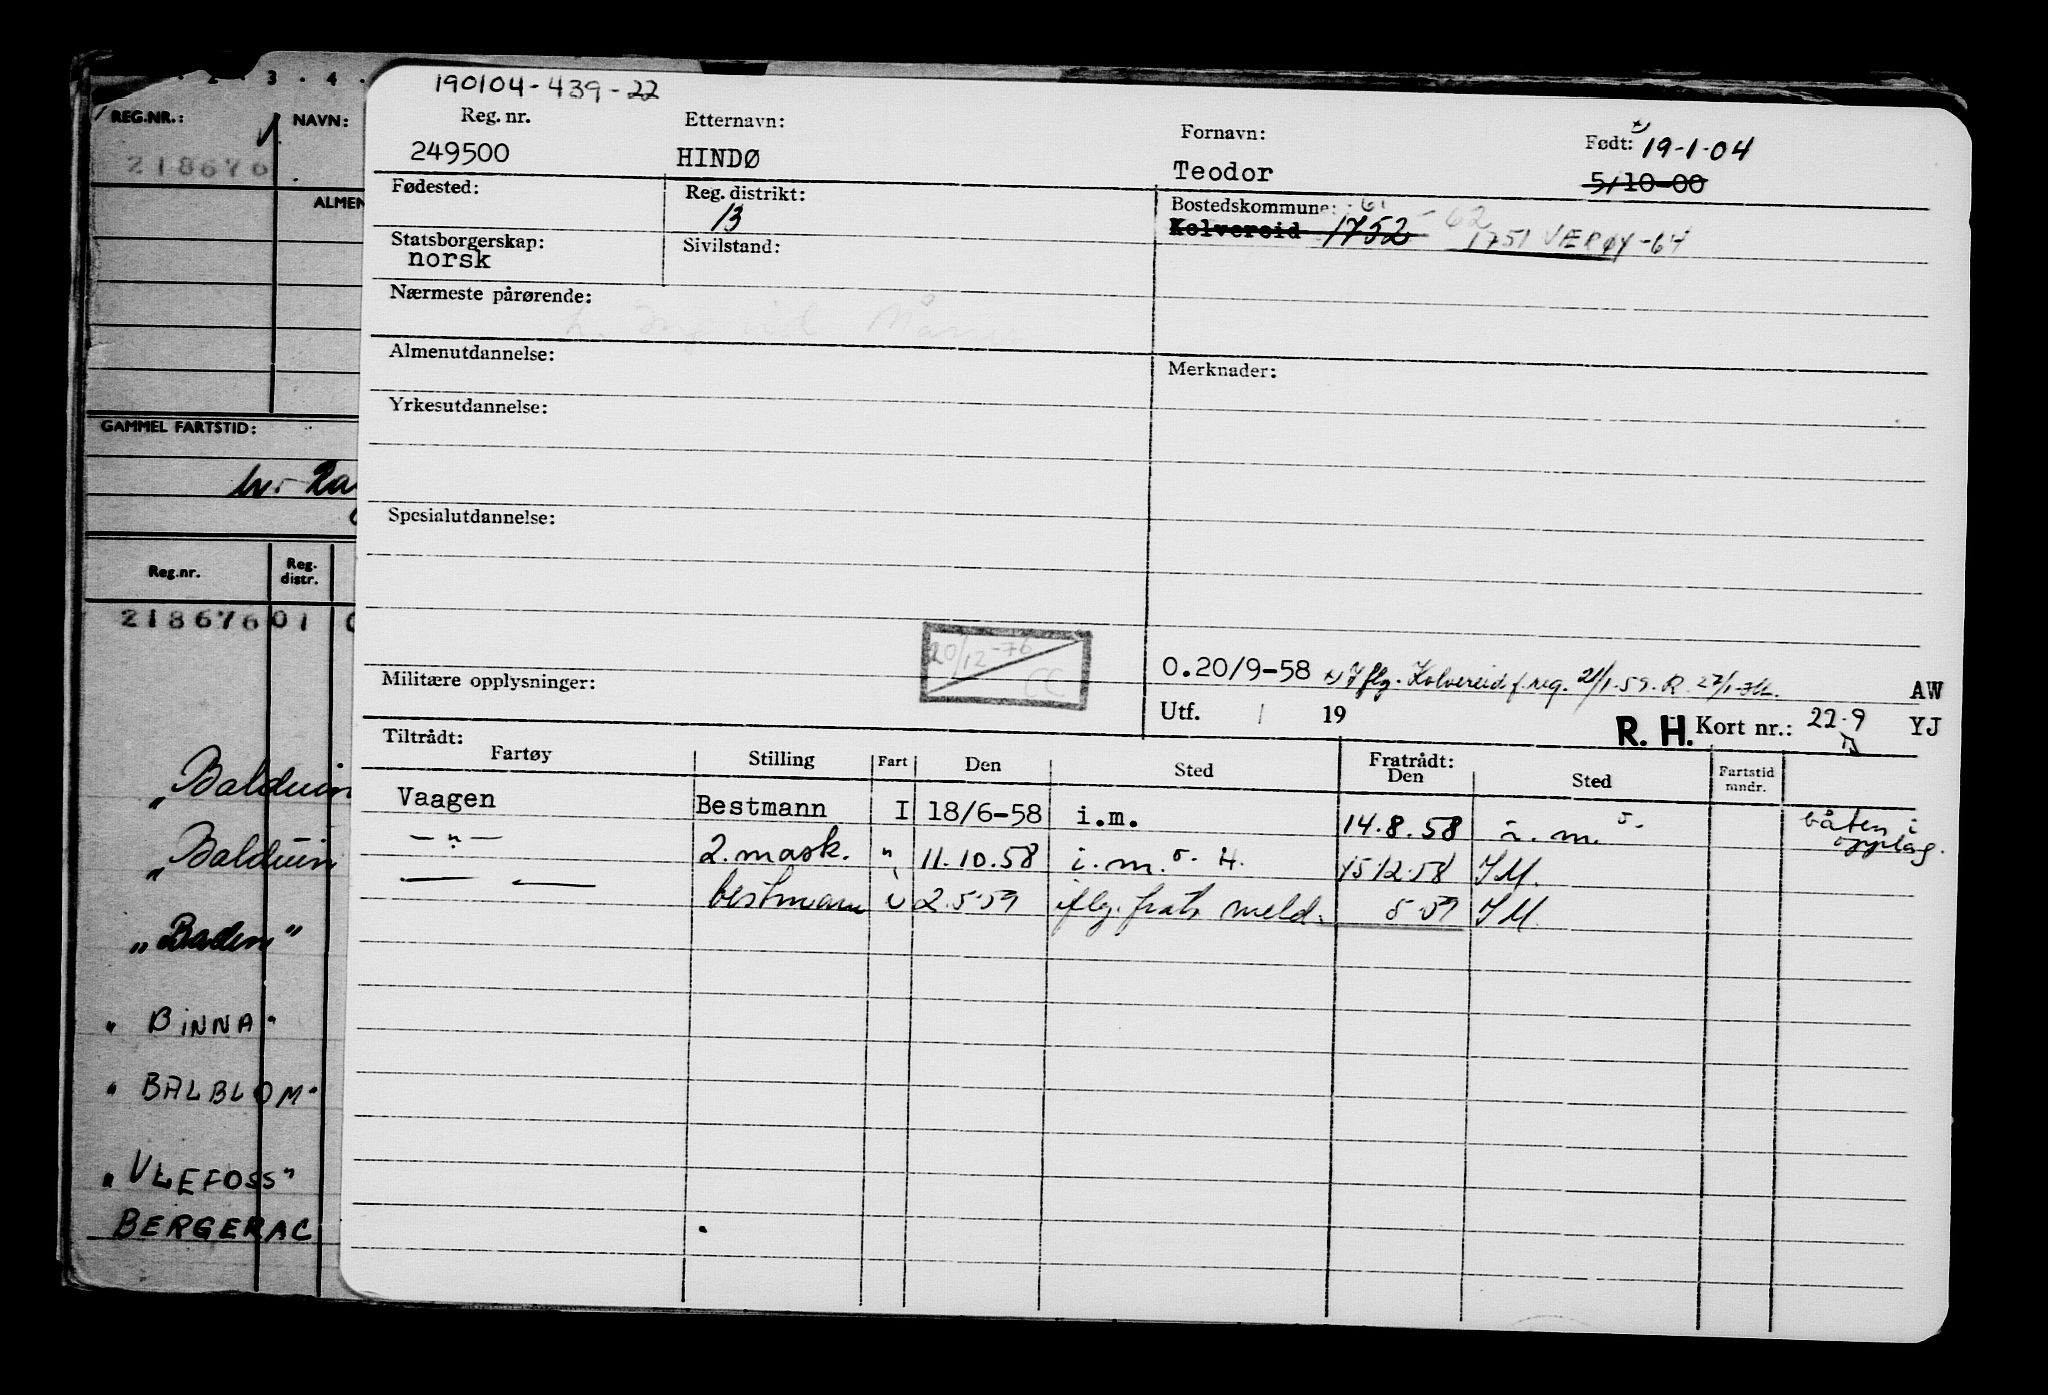 . 2 . 3 . 4 .
REG.NR.:
NAVN:
218676
ALMEN
GAMMEL FARTSTID:
Reg.nr.
Reg. distr.
218676 01
„Balduin
„Balduin
„Baden"
" BINNA "
" BALBLOM "
„ULEFOSS"
BERGERAC
190104-439-22
Reg. nr.
Etternavn:
Fornavn:
Født: 19-1-04
249500
HINDØ
Teodor
5/10-00
Fødested:
Reg. distrikt:
13
Bostedskommune:
Kolvereid 1752 - 62
1751 VÆRØY -64
Statsborgerskap:
norsk
Sivilstand:
Nærmeste pårørende:
Almenutdannelse:
Merknader:
Yrkesutdannelse:
Spesialutdannelse:
20/12-76
CC
Militære opplysninger:
0.20/9-58 x) Iflg. Kolvereid f.reg. 21/1-59. R.
AW
Utf. / 19
R. H. Kort nr.: 22.9
YJ
Tiltrådt:
Fartøy
Stilling
Fart
Den
Sted
Fratrådt:
Den
Sted
Fartstid mndr.
Vaagen Bestmann I 18/6-58 i.m. 14.8.58 båten i opplag.
— " — 2. mask. " 11.10.58 i.m. 15 12 58 IM.
bestmann 2.5.59 iflg. fratr meld. 5 59 IM.